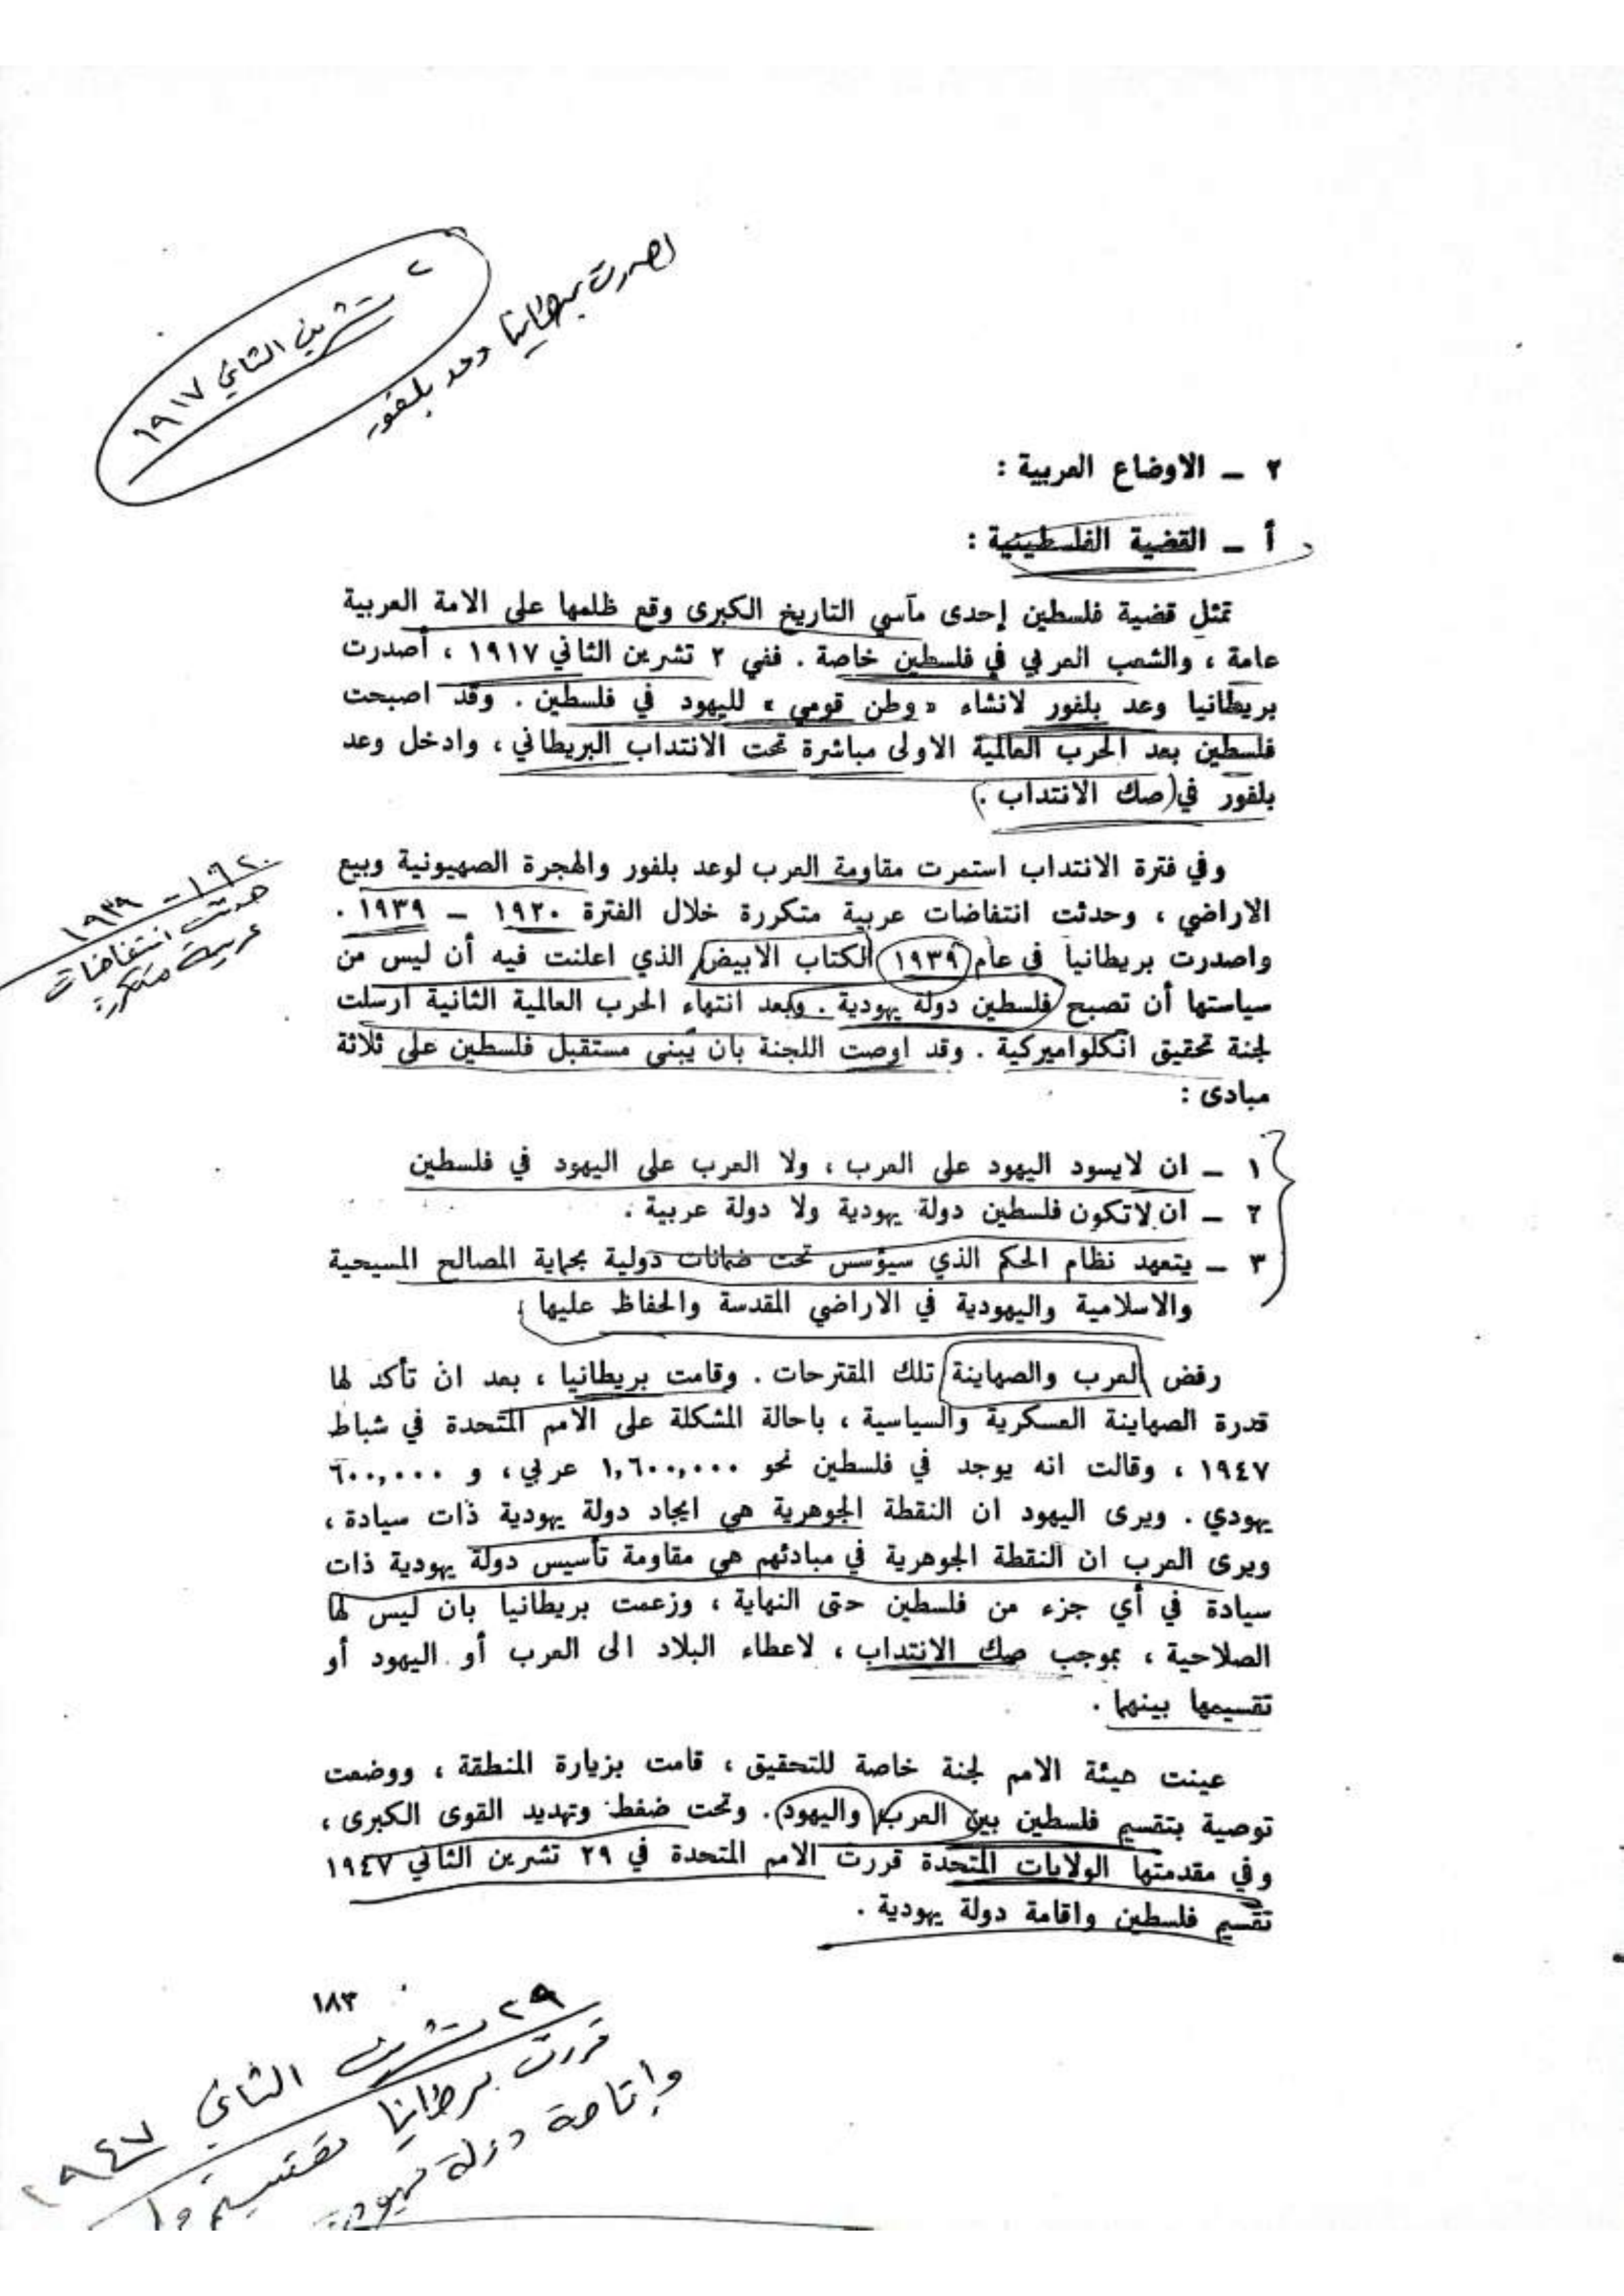 ٢ تشرين الثاني ١٩١٧
اصدرت بريطانيا وعد بلفور
٢ ــ الاوضاع العربية :
أ ــ القضية الفلسطينية :
تمثل قضية فلسطين إحدى مآسي التاريخ الكبرى وقع ظلمها على الامة العربية
عامة ، والشعب العربي في فلسطين خاصة . ففي ٢ تشرين الثاني ١٩١٧ ، أصدرت
بريطانيا وعد بلفور لانشاء « وطن قومي » لليهود في فلسطين . وقد اصبحت
فلسطين بعد الحرب العالمية الاولى مباشرة تحت الانتداب البريطاني ، وادخل وعد
بلفور في (صك الانتداب .)
وفي فترة الانتداب استمرت مقاومة العرب لوعد بلفور والهجرة الصهيونية وبيع
الاراضي ، وحدثت انتفاضات عربية متكررة خلال الفترة ١٩٢٠ ــ ١٩٣٩ .
واصدرت بريطانيا في عام ١٩٣٩ الكتاب الابيض الذي اعلنت فيه أن ليس من
سياستها أن تصبح فلسطين دولة يهودية . وبعد انتهاء الحرب العالمية الثانية ارسلت
لجنة تحقيق انكلواميركية . وقد اوصت اللجنة بان يبنى مستقبل فلسطين على ثلاثة
مبادى :
١٩٢٠ - ١٩٣٩
حدثت انتفاضات
عربية متكررة
١ ــ ان لايسود اليهود على العرب ، ولا العرب على اليهود في فلسطين
٢ ــ ان لاتكون فلسطين دولة يهودية ولا دولة عربية .
٣ ــ يتعهد نظام الحكم الذي سيؤسس تحت ضمانات دولية بحماية المصالح المسيحية
والاسلامية واليهودية في الاراضي المقدسة والحفاظ عليها .
رفض العرب والصهاينة تلك المقترحات . وقامت بريطانيا ، بعد ان تأكد لها
قدرة الصهاينة العسكرية والسياسية ، باحالة المشكلة على الامم المتحدة في شباط
١٩٤٧ ، وقالت انه يوجد في فلسطين نحو ١,٦٠٠,٠٠٠ عربي ، و ٦٠٠,٠٠٠
يهودي . ويرى اليهود ان النقطة الجوهرية هي ايجاد دولة يهودية ذات سيادة ،
ويرى العرب ان النقطة الجوهرية في مبادئهم هي مقاومة تأسيس دولة يهودية ذات
سيادة في أي جزء من فلسطين حتى النهاية ، وزعمت بريطانيا بان ليس لها
الصلاحية ، بموجب صك الانتداب ، لاعطاء البلاد الى العرب أو اليهود أو
تقسيمها بينهما .
عينت هيئة الامم لجنة خاصة للتحقيق ، قامت بزيارة المنطقة ، ووضعت
توصية بتقسيم فلسطين بين العرب واليهود . وتحت ضغط وتهديد القوى الكبرى ،
وفي مقدمتها الولايات المتحدة قررت الامم المتحدة في ٢٩ تشرين الثاني ١٩٤٧
تقسيم فلسطين واقامة دولة يهودية .
١٨٣
٢٩ تشرين الثاني ١٩٤٧
قررت بريطانيا تقسيم
وإقامة دولة يهودية